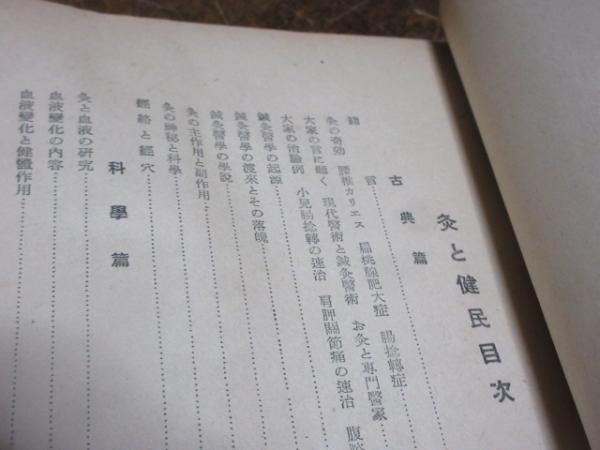 灸と健民目次
古典篇
緒言
灸の奇効 腰椎カリエス 扁桃腺肥大症 腸捻轉症
大家の言に聴く 現代醫術と鍼灸醫術 お灸と専門醫家
大家の治驗例 小兒腸捻轉の速治 肩胛關節痛の速治 腹
鍼灸醫學の起源
鍼灸醫學の渡來とその落魄
鍼灸醫學の學説
灸の主作用と副作用
灸の神秘と科學
經絡と經穴
科學篇
灸と血液の研究
血液變化の内容
血液變化と健體作用